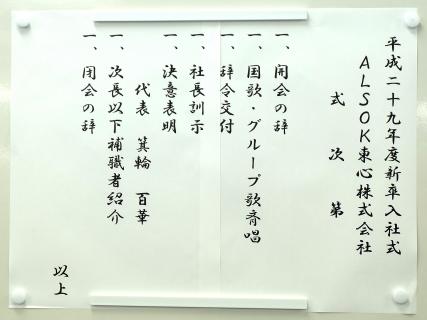 平成二十九年度新卒入社式
ALSOK東心株式会社
式次第
一、開会の辞
一、国歌・グループ歌斉唱
一、辞令交付
一、社長訓示
一、決意表明
代表 箕輪 百華
一、次長以下補職者紹介
一、閉会の辞
以上